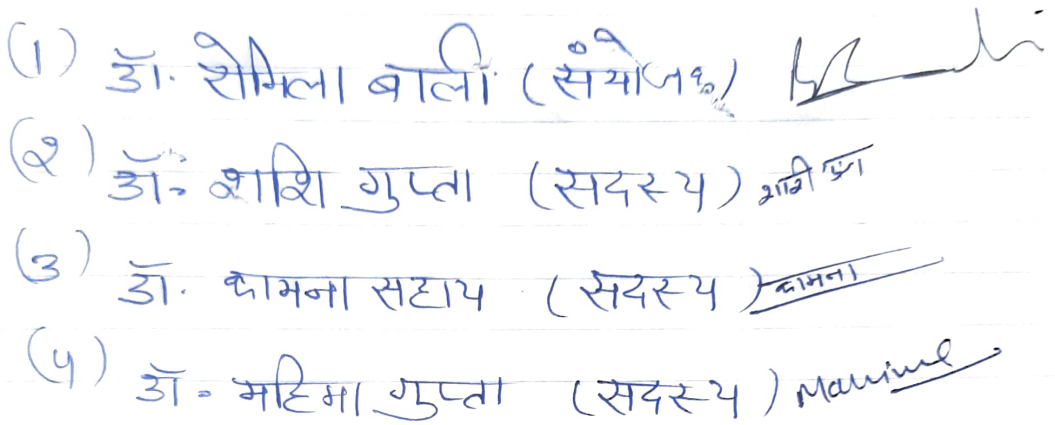 (1) डॉ. रोमिला बाली (संयोजक)
(२) डॉ. शशि गुप्ता (सदस्य) शशि गुप्ता
(३) डॉ. कामना सहाय (सदस्य) कामना
(४) डॉ. महिमा गुप्ता (सदस्य) Mahima